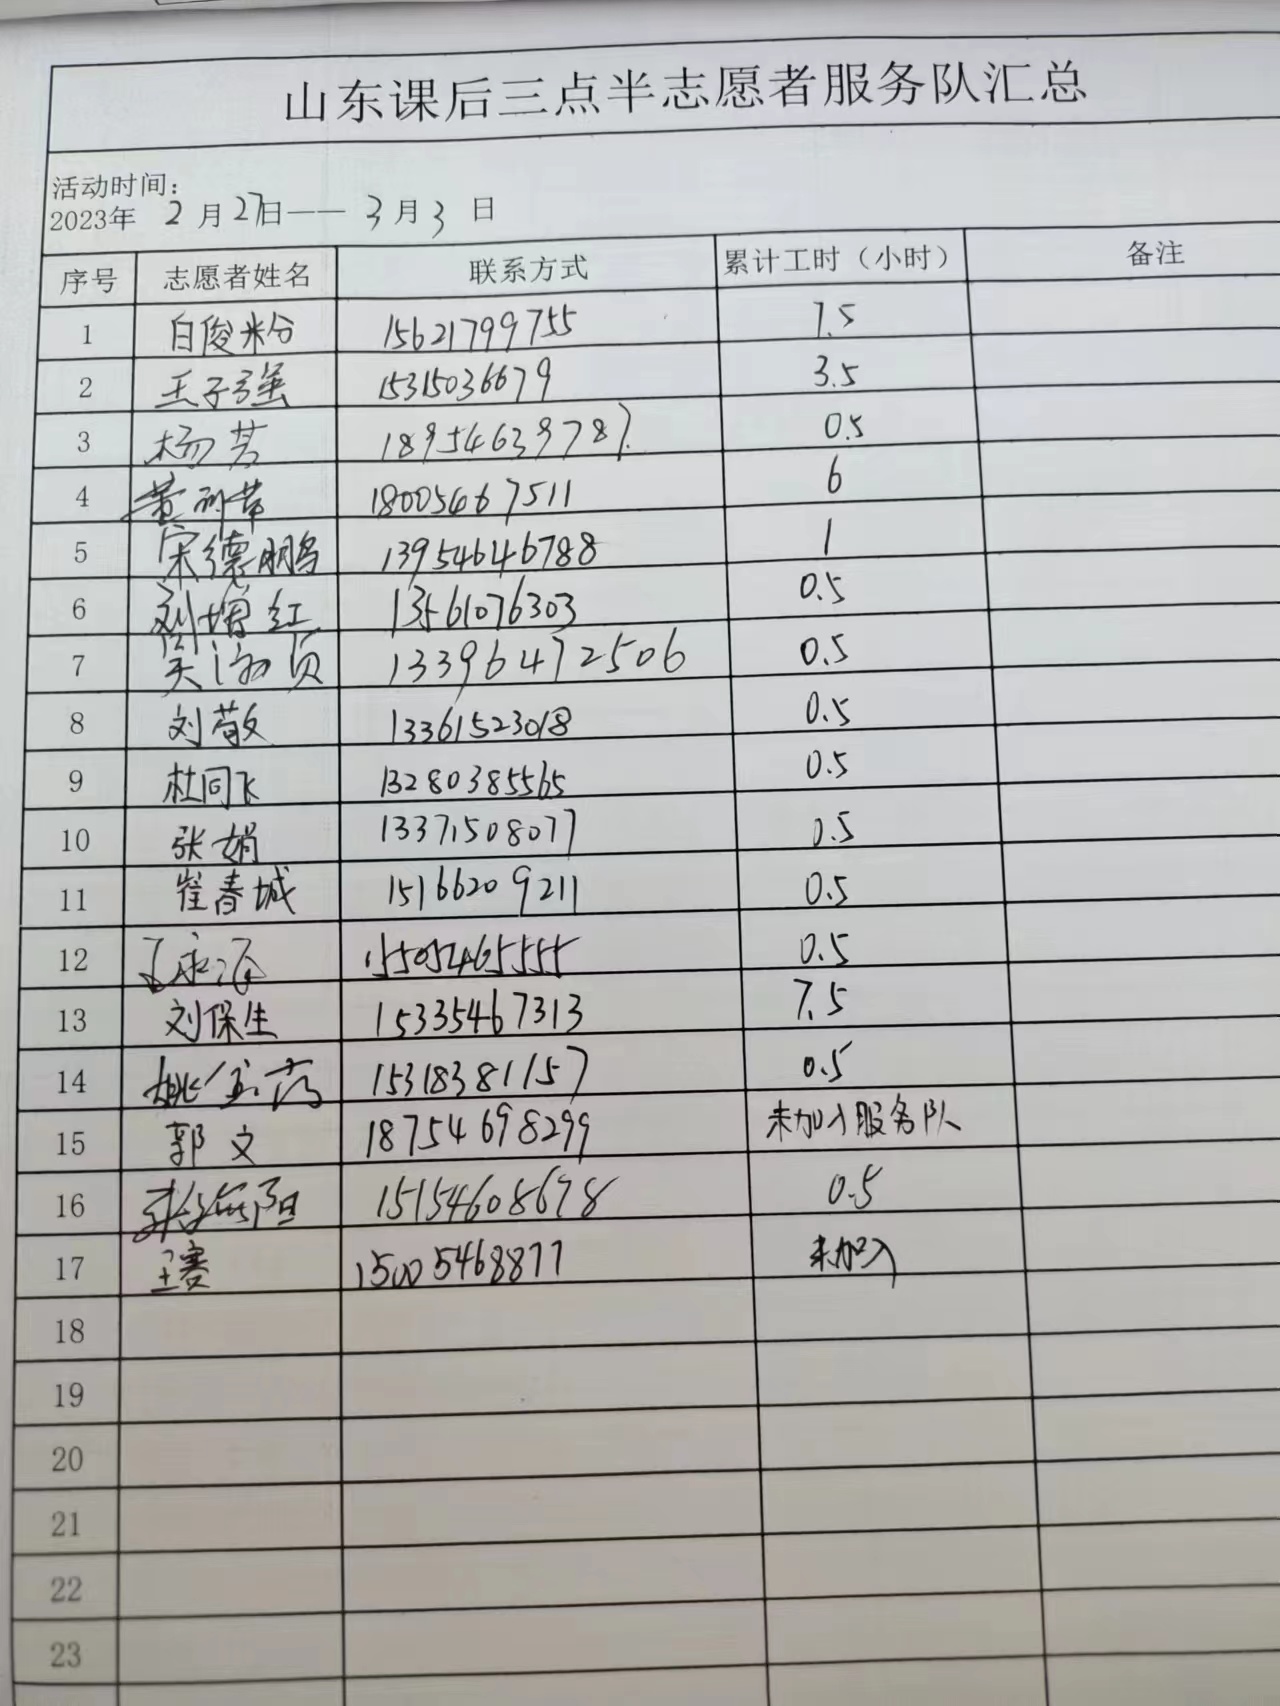 山东课后三点半志愿者服务队汇总
活动时间：
2023年 2月27日—— 3月3日
序号 志愿者姓名 联系方式 累计工时（小时） 备注
1 白俊粉 15621799755 7.5
2 王子强 15315036679 3.5
3 杨芳 18954639787 0.5
4 18005467511 6
5 宋德鹏 13954646788 1
6 刘增红 13561076303 0.5
7 13396472506 0.5
8 刘敬 13361523018 0.5
9 杜同飞 13280385565 0.5
10 张娟 13371508077 0.5
11 崔春城 15166209211 0.5
12 15505465555 0.5
13 刘保生 15335467313 7.5
14 15318381157 0.5
15 郭文 18754698299 未加入服务队
16 15154608678 0.5
17 王赛 15005468877 未加入
18
19
20
21
22
23